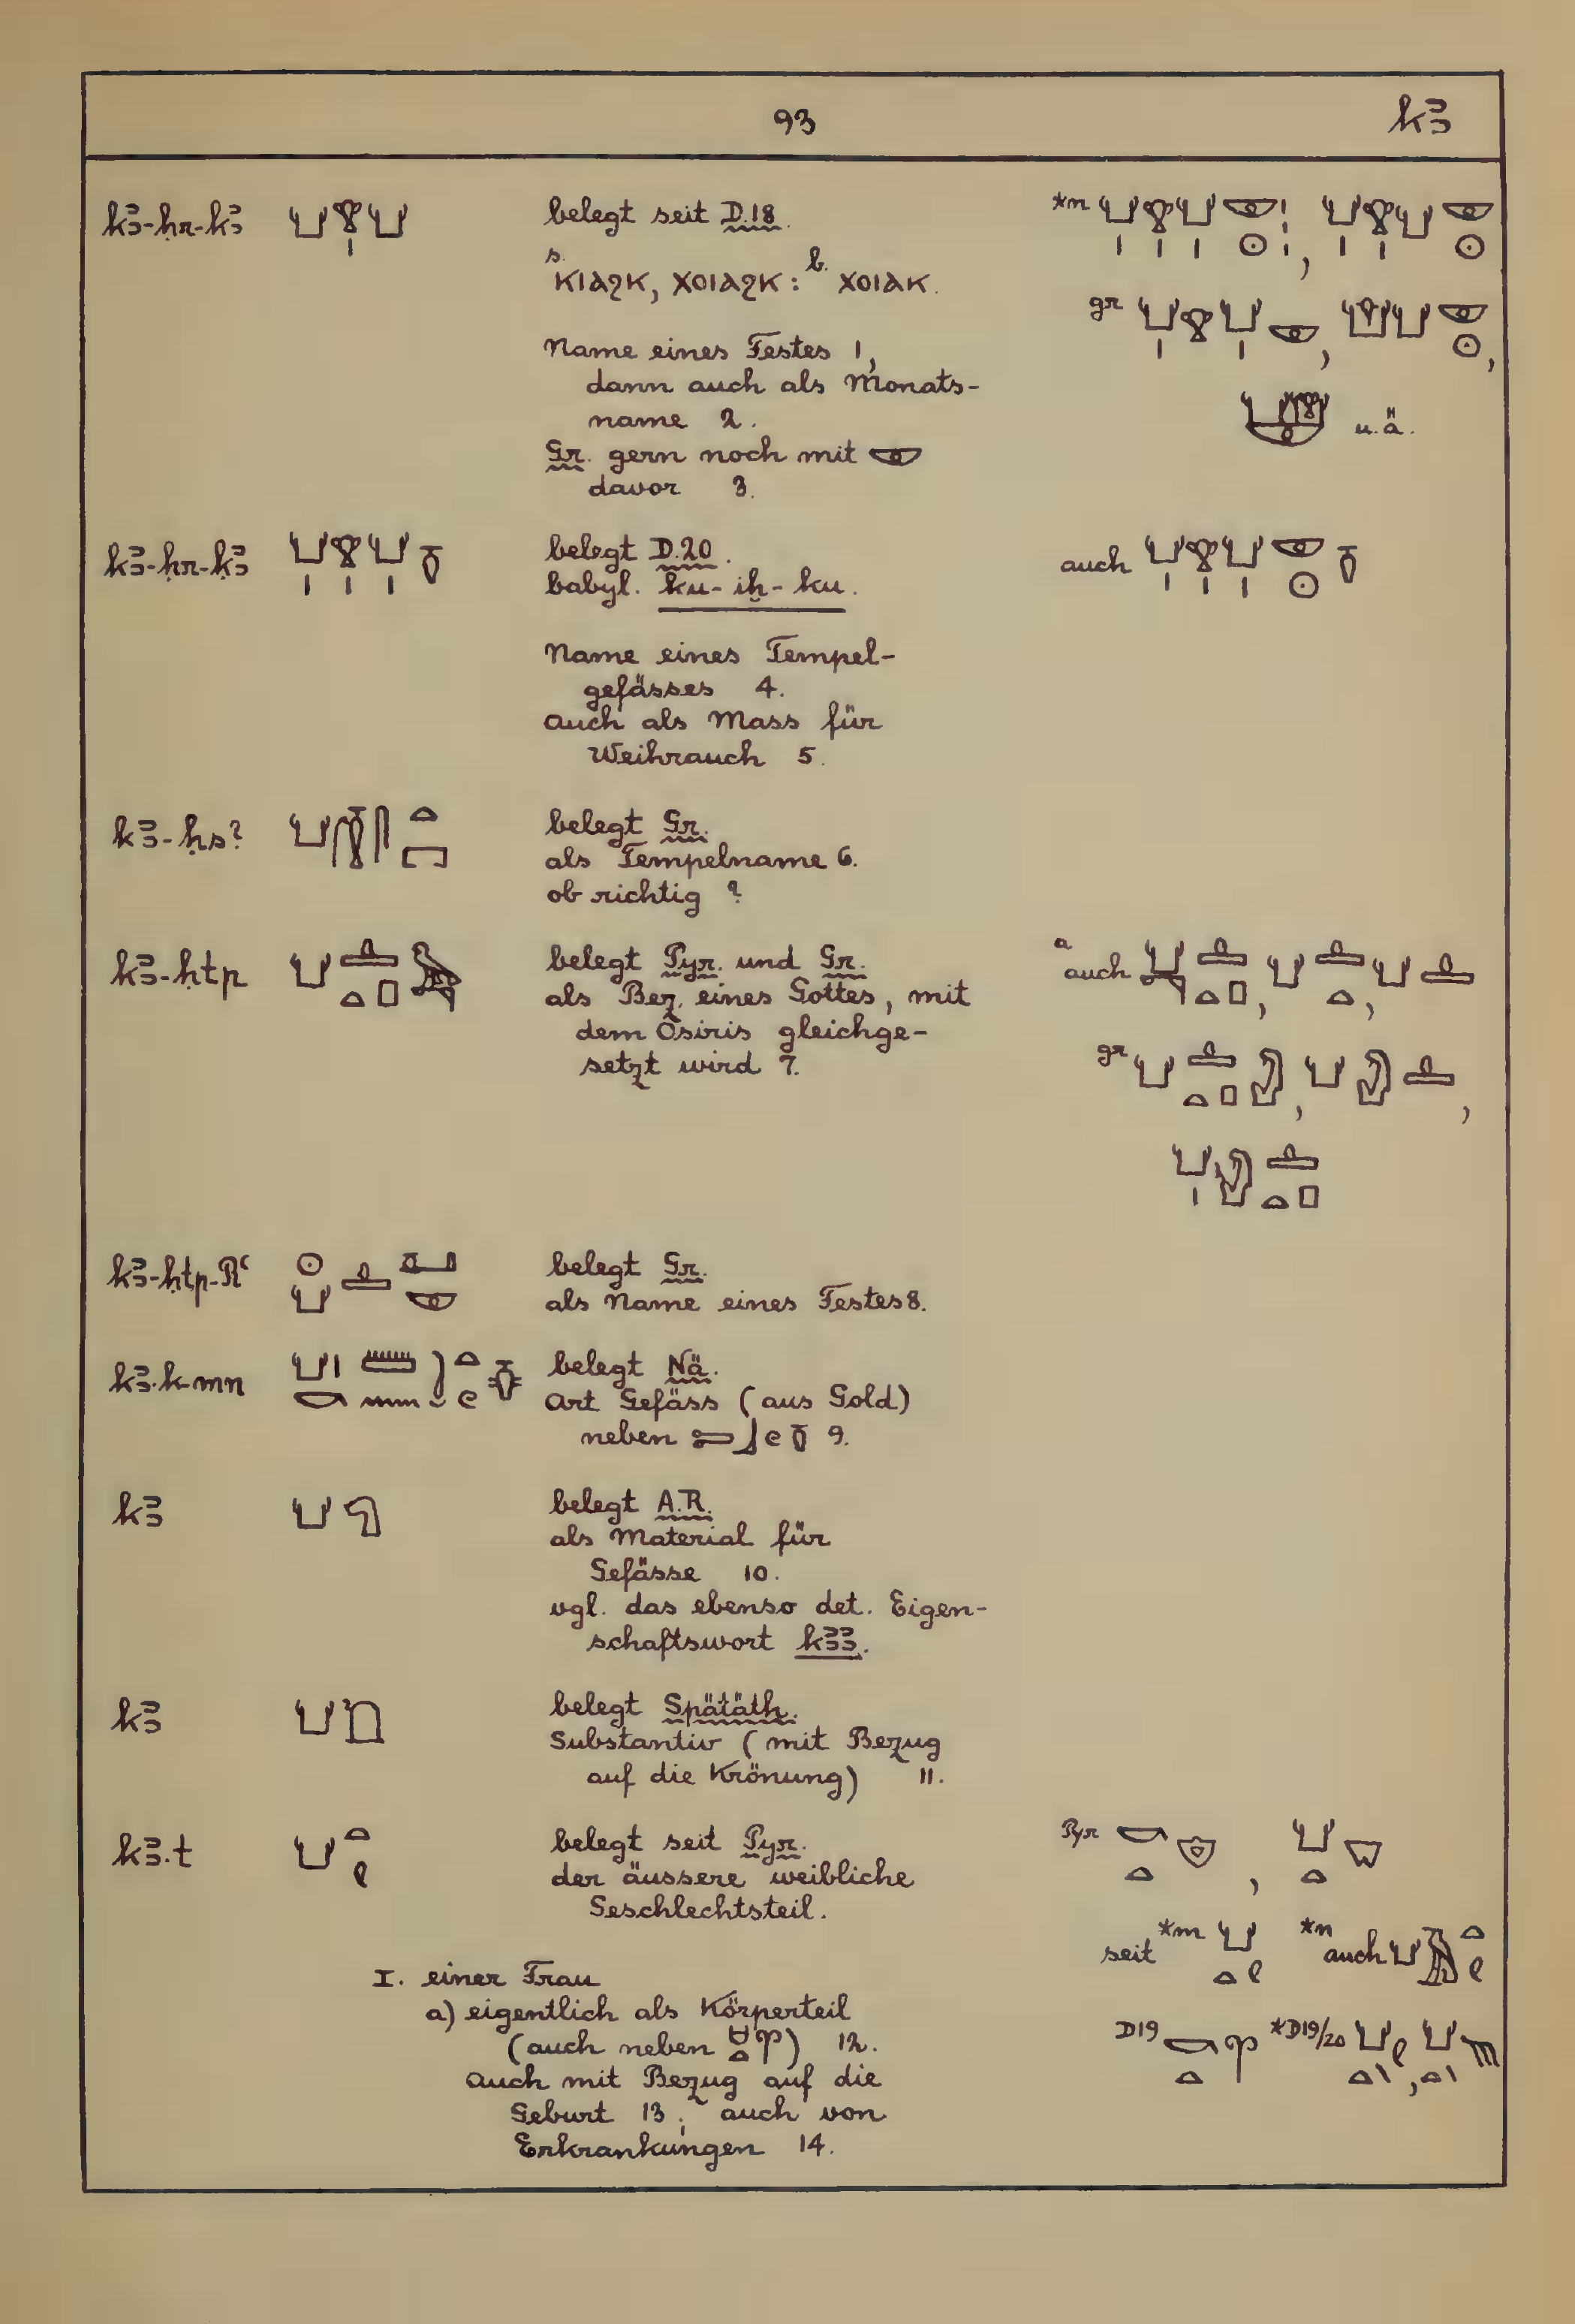 93
kꜣ
kꜣ-ḥr-kꜣ
belegt seit D.18.
s. ⲕⲓⲁϩⲕ, ⲭⲟⲓⲁϩⲕ : b. ⲭⲟⲓⲁⲕ.
Name eines Festes 1,
dann auch als Monats-
name 2.
Gr. gern noch mit 𓎱
davor 3.
*n
gr
u.ä.
kꜣ-ḥr-kꜣ
belegt D.20.
babyl. ku-iḫ-ku.
Name eines Tempel-
gefässes 4.
auch als Mass für
Weihrauch 5.
auch
kꜣ-ḥs?
belegt Gr.
als Tempelname 6.
ob richtig ?
kꜣ-ḥtp
belegt Pyr. und Gr.
als Bez. eines Gottes, mit
dem Osiris gleichge-
setzt wird 7.
a auch
gr
kꜣ-ḥtp-Rʿ
belegt Gr.
als Name eines Festes 8.
kꜣ.k-mn
belegt Nä.
Art Gefäss (aus Gold)
neben 9.
kꜣ
belegt A.R.
als Material für
Gefässe 10.
vgl. das ebenso det. Eigen-
schaftswort kꜣꜣ.
kꜣ
belegt Spätäth.
Substantiv (mit Bezug
auf die Krönung) 11.
kꜣ.t
belegt seit Pyr.
der äussere weibliche
Geschlechtsteil.
I. einer Frau
a) eigentlich als Körperteil
(auch neben ) 12.
auch mit Bezug auf die
Geburt 13; auch von
Erkrankungen 14.
Pyr
seit *m *n auch
D19 *D19/20